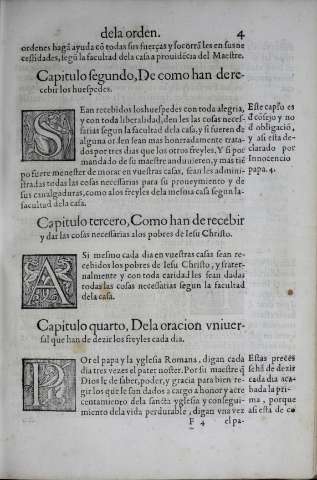 dela orden.
4
ordenes hagã ayuda cõ todas sus fuerças y socorrã les en sus ne
cessidades, segũ la facultad dela casa a prouidẽcia del Maestre.
Capitulo segundo, De como han de re-
cebir los huespedes.
SEan recebidos los huespedes con toda alegria,
y con toda liberalidad, den les las cosas neces-
sarias segun la facultad dela casa, y si fueren de
alguna orden sean mas honrradamente trata-
dos por tres dias que los otros freyles, Y si por
mandado de su maestre anduuieren, y mas tiẽ
po fuere menester de morar en vuestras casas, sean les admini-
stradas todas las cosas necessarias para su proueymiento y de
sus caualgaduras, como alos freyles dela mesma casa segun la
facultad dela casa.
Este capto es
d cõsejo y no
d obligaciõ,
y assi esta de-
clarado por
Innocencio
papa. 4.
Capitulo tercero, Como han de recebir
y dar las cosas necessarias alos pobres de Iesu Christo.
ASi mesmo cada dia en vuestras casas sean re-
cebidos los pobres de Iesu Christo, y frater-
nalmente y con toda caridad les sean dadas
todas las cosas necessarias segun la facultad
dela casa.
Capitulo quarto, Dela oracion vniuer-
sal que han de dezir los freyles cada dia.
POr el papa y la yglesia Romana, digan cada
dia tres vezes el pater noster. Por su maestre q̃
Dios le de saber, poder, y gracia para bien re-
gir los que le son dados a cargo a honor y acre
centamiento dela sancta yglesia y consegui-
miento dela vida perdurable, digan vna vez
Estas preces
se hã de dezir
cada dia aca-
bada la pri-
ma, porque
assi esta de co
F 4
el pa-